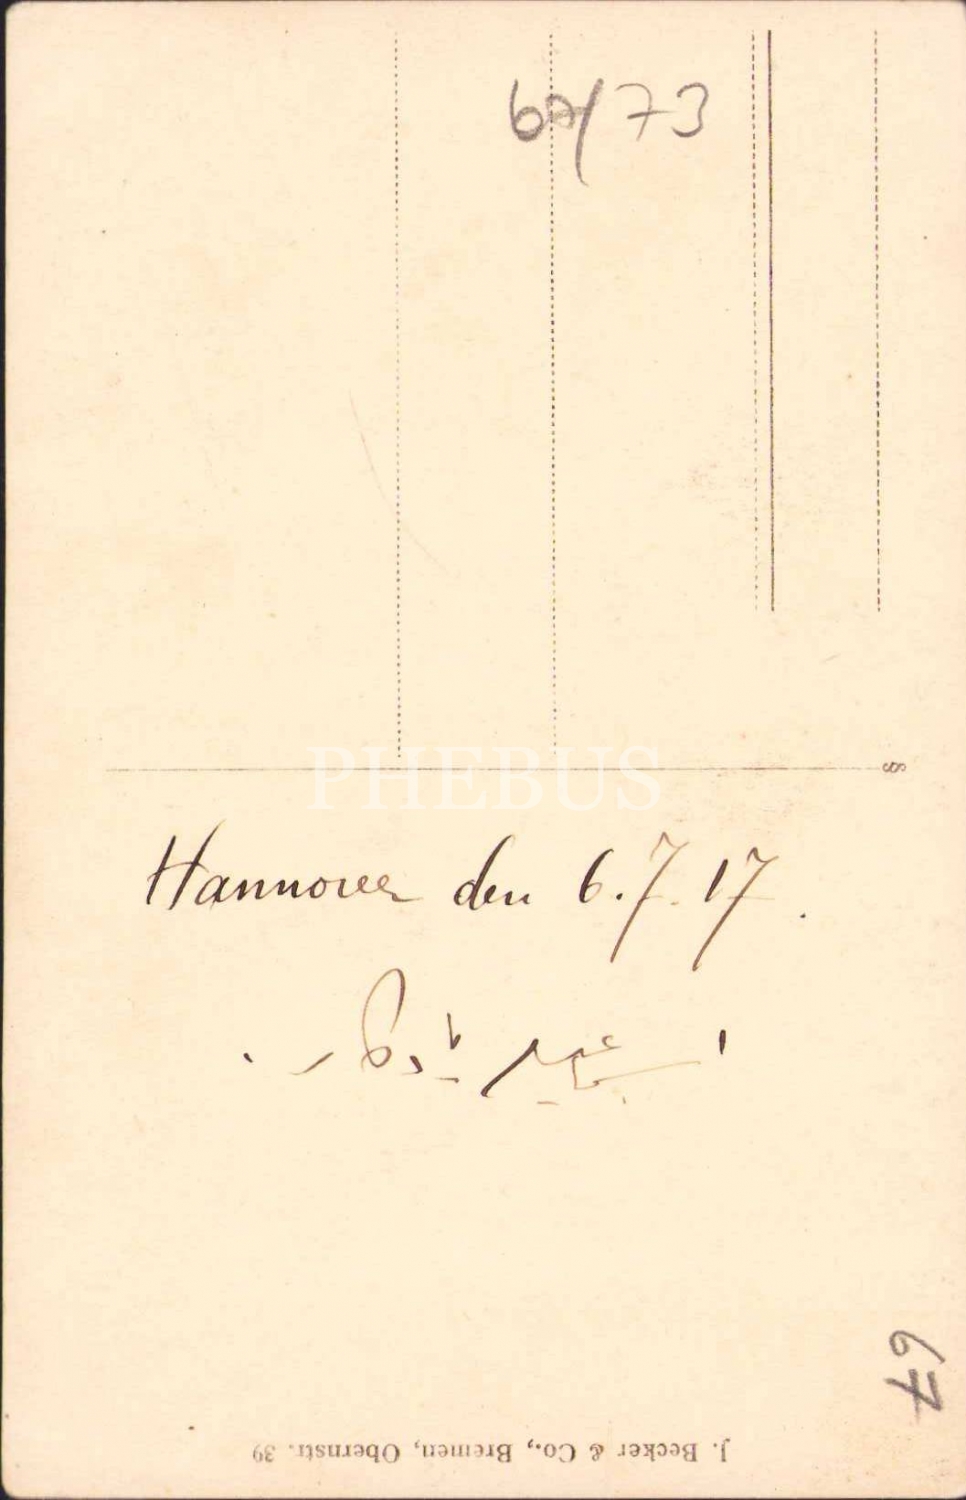 73
PHEBUS
8
Hannover den 6.7.17.
67
J. Becker & Co., Bremen, Obernstr. 39